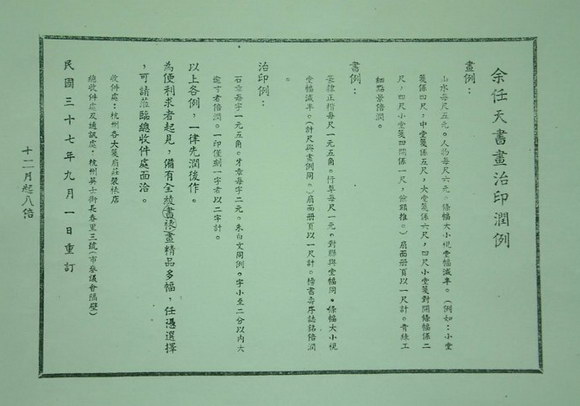 余任天書畫治印潤例
畫例：
山水每尺五元。人物每尺六元。條幅大小視堂幅減半。(例如：小堂
箋條四尺，中堂箋條五尺，大堂箋條六尺，四尺小堂箋對開條幅條二
尺，四尺小堂箋四開條一尺，餘類推。)扇面册頁以一尺計。青綠工
細點景倍潤。
書例：
篆隸正楷每尺一元五角。行草每尺一元。對聯與堂幅同。條幅大小視
堂幅減半。(計尺與畫例同。)扇面册頁以一尺計。榜書壽序誌銘倍潤
。
治印例：
石章每字一元五角。牙章每字二元。朱白文同例。字小至二分以內大
逾寸者倍潤。一印僅刻一字者以二字計。
以上各例，一律先潤後作。
為便利求者起見，備有全綾畫裱畫精品多幅，任憑選擇
，可請蒞臨總收件處面洽。
收件處：杭州各大箋扇莊裝裱店
總收件處及通訊處：杭州英士街長春里三號(市參議會隔壁)
民國三十七年九月一日重訂
十二月起八倍